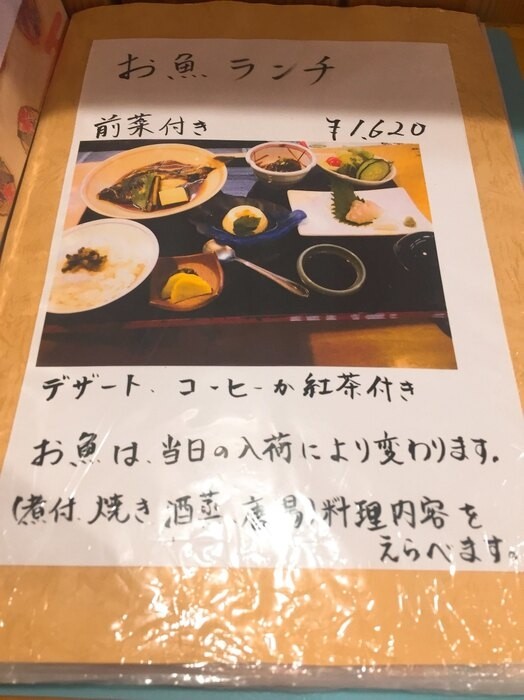 お魚ランチ
前菜付き ¥1,620
デザート、コーヒーか紅茶付き
お魚は、当日の入荷により変わります。
(煮付、焼き、酒蒸、唐昜)料理内容を
えらべます。